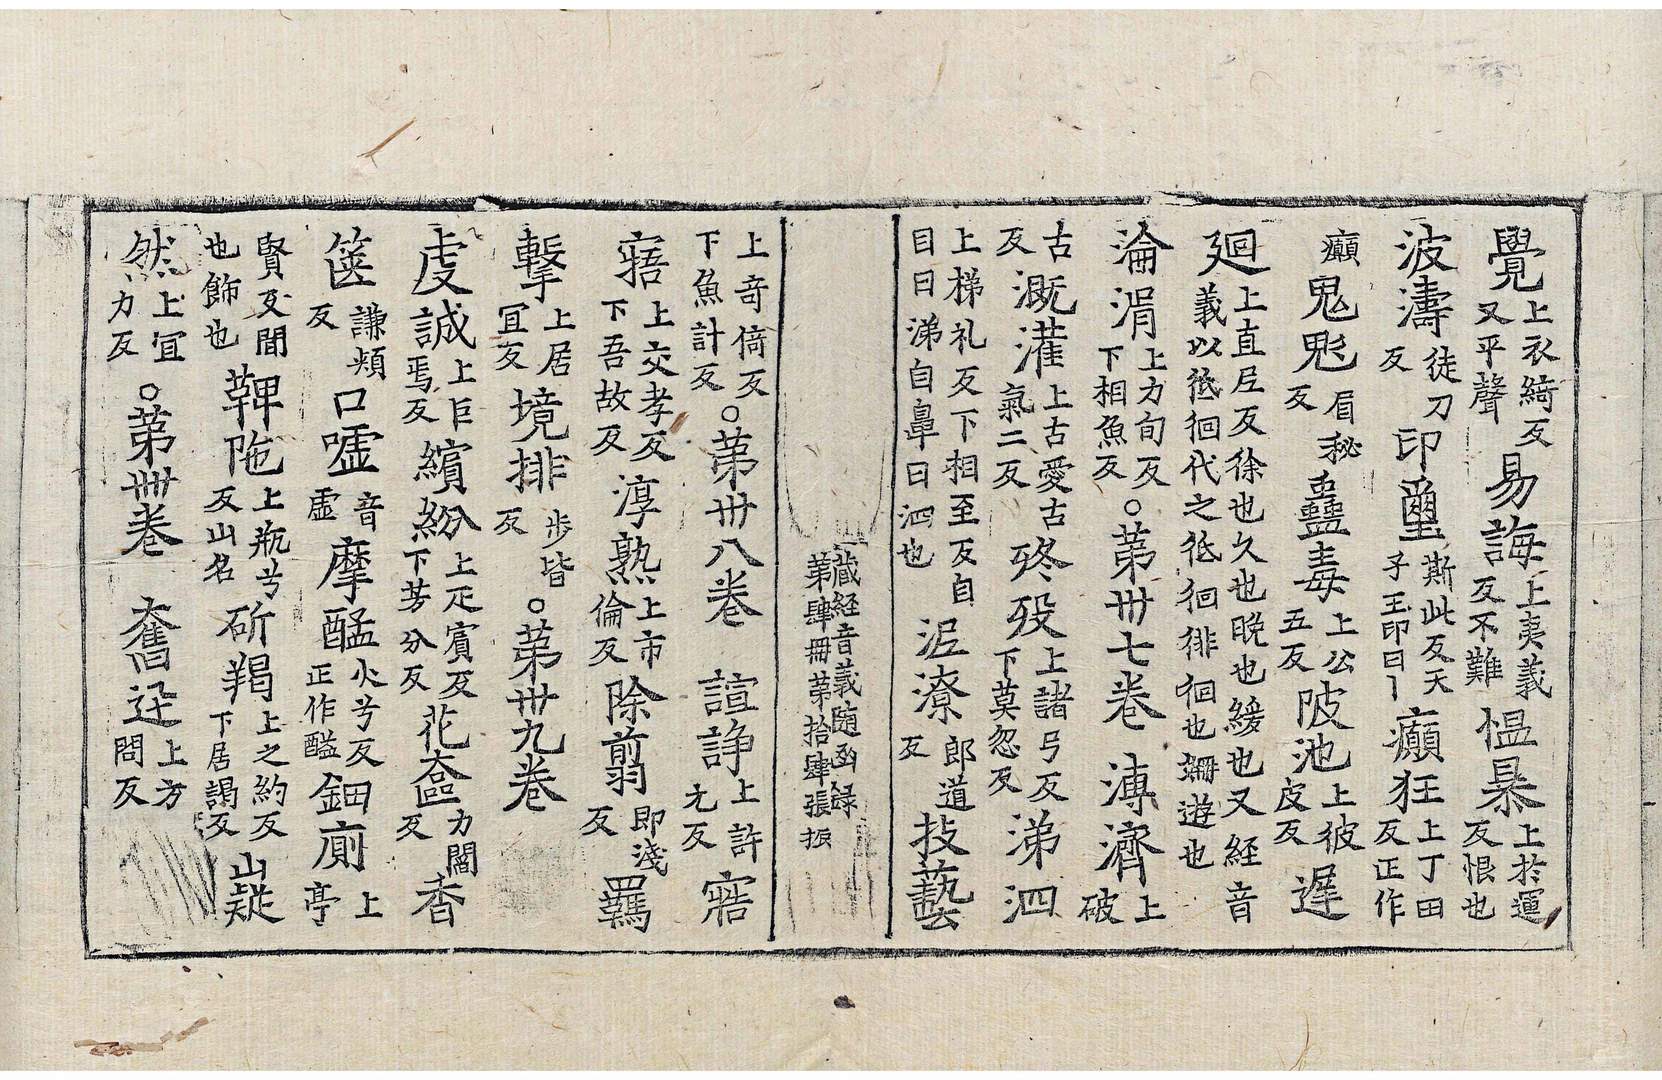 覺上衣綺反又平聲易誨上夷義反不難愠暴上於運反恨也
波濤徒刀反印璽斯此反天子玉印曰丨癲狂上丁田反正作
癲鬼魅眉秘反蠱毒上公五反陂池上彼皮反遲
迴上直尼反徐也久也晚也緩也又經音義以彽徊代之彽徊徘徊也翱遊也
淪湑上力旬反下相魚反○第卅七卷漙濟上破
古反溉灌上古愛古氣二反終殁上諸弓反下莫忽反涕泗
上梯礼反下相至反自目曰涕自鼻曰泗也泥潦郎道反技藝
藏經音義隨函錄
第肆冊第拾肆張振
上竒倚反下魚計反○第卅八卷諠諍上許元反
寤上交孝反下吾故反淳熟上市倫反除翦即淺反羈
擊上居宜反境排步皆反○第卅九卷
虔誠上巨焉反繽紛上疋賓反下芳分反花奩力閻反香
篋謙頰反口嘘音虛摩醯火兮反正作醯鈿廁上亭
賢反間也飾也鞞陁上瓶兮反山名斫羯上之約反下居謁反嶷
然上宜力反○第卌卷奮迅上方問反